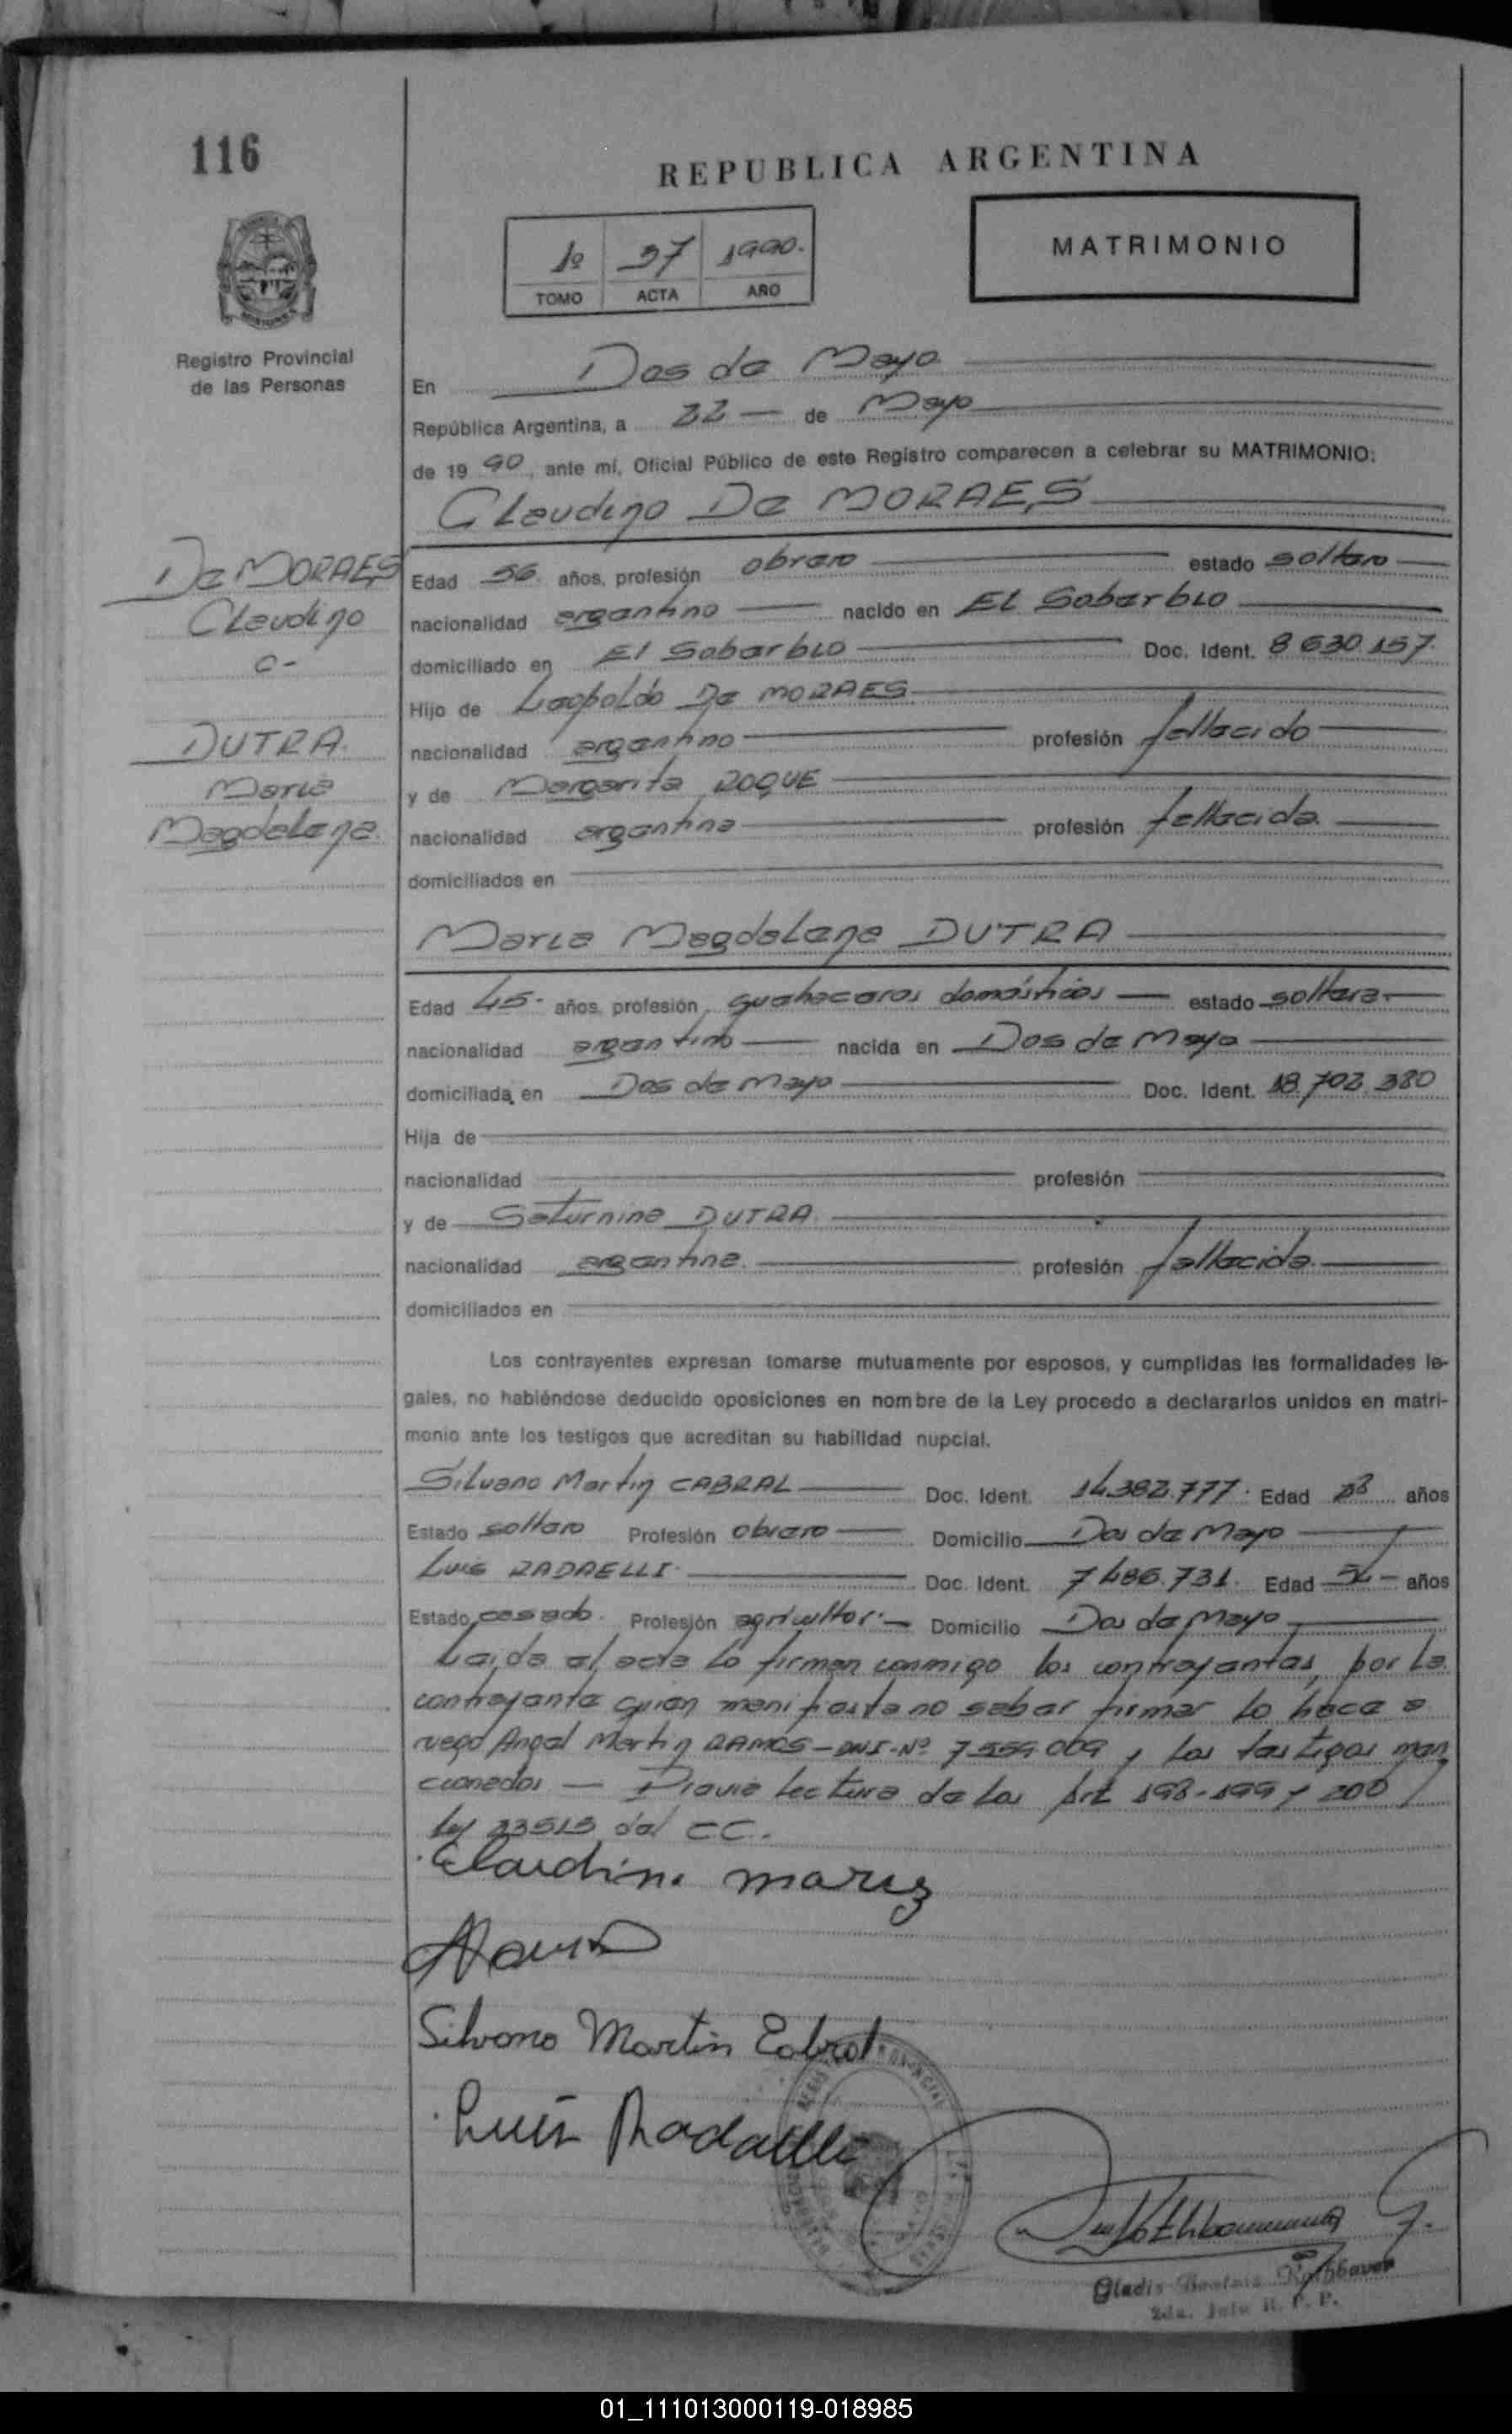 116
REPUBLICA ARGENTINA
1º 37 1990.
TOMO ACTA AÑO
MATRIMONIO
Registro Provincial
de las Personas
En Dos de Mayo
República Argentina, a 22 de Mayo
de 19 90, ante mí, Oficial Público de este Registro comparecen a celebrar su MATRIMONIO:
Claudino De MORAES
De MORAES
Claudino
c-
DUTRA.
Maria
Magdalena.
Edad 56 años, profesión obrero estado soltero
nacionalidad argentino nacido en El Soberbio
domiciliado en El Soberbio Doc. Ident. 8 630.157.
Hijo de Leopoldo De MORAES
nacionalidad argentino profesión fallecido
y de Margarita ROQUE
nacionalidad argentina profesión fallecida.
domiciliados en
Maria Magdalena DUTRA
Edad 45. años, profesión quehaceres domésticos estado soltera.
nacionalidad argentino nacida en Dos de Mayo
domiciliada en Dos de Mayo Doc. Ident. 18.702.380
Hija de
nacionalidad profesión
y de Saturnina DUTRA.
nacionalidad argentina. profesión fallecida.
domiciliados en
Los contrayentes expresan tomarse mutuamente por esposos, y cumplidas las formalidades le-
gales, no habiéndose deducido oposiciones en nombre de la Ley procedo a declararlos unidos en matri-
monio ante los testigos que acreditan su habilidad nupcial.
Silvano Martin CABRAL Doc. Ident. 14.382.777. Edad años
Estado soltero Profesión obrero Domicilio Dos de Mayo
Luis RADAELLI. Doc. Ident. 7 486.731. Edad años
Estado casado. Profesión agricultor. Domicilio Dos de Mayo
Leida el acta lo firman conmigo los contrayentes, por la
contrayente quien manifiesta no saber firmar lo hace a
ruego Angel Martin RAMOS-DNI-Nº 7 559 009 y los testigos men
cionados — Previa lectura de los Art 198-199 y 200
ley 23515 del CC.
Claudino
Silvano Martin Cabral
Luis Radaelli
Gladis Rothbauer
2da. Jefe R. P. P.
01_111013000119-018985